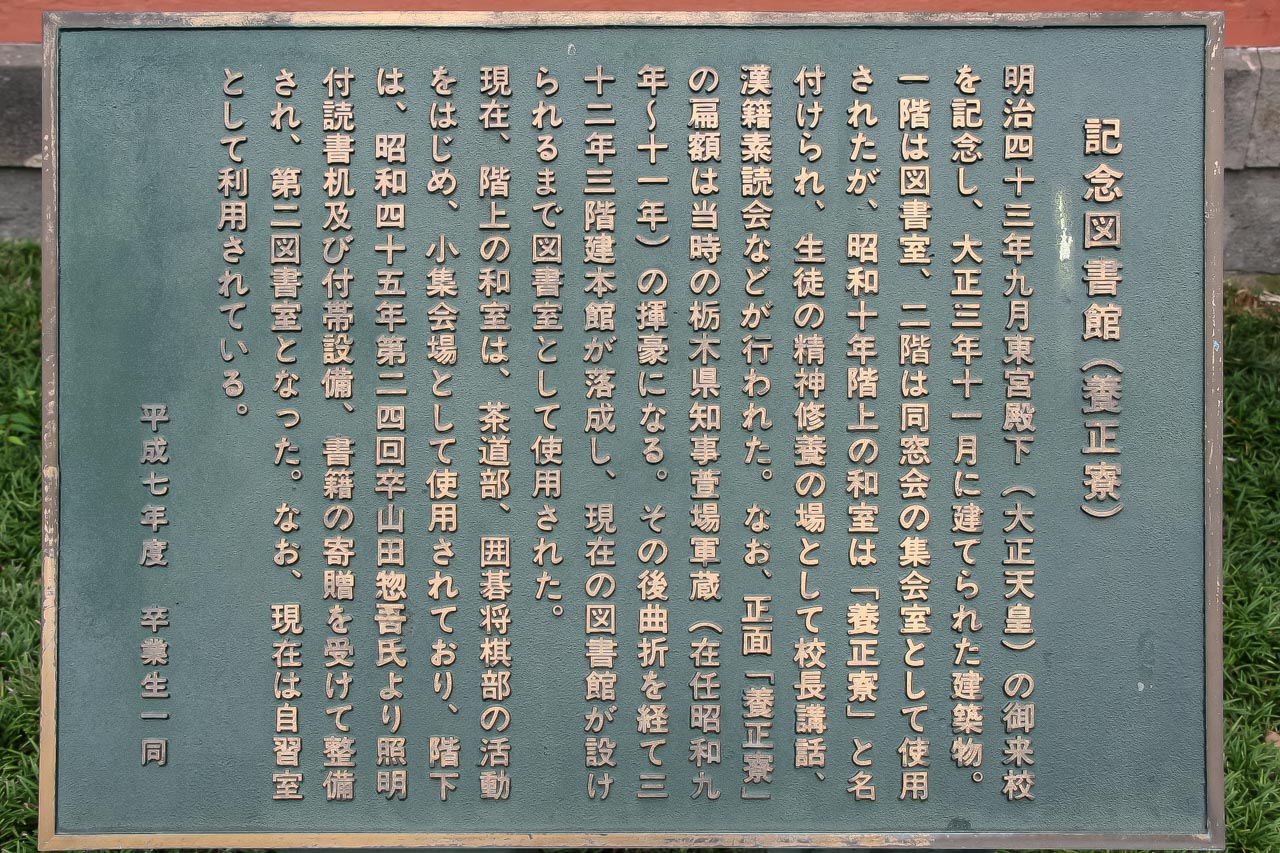 記念図書館（養正寮）
明治四十三年九月東宮殿下（大正天皇）の御来校
を記念し、大正三年十一月に建てられた建築物。
一階は図書室、二階は同窓会の集会室として使用
されたが、昭和十年階上の和室は「養正寮」と名
付けられ、生徒の精神修養の場として校長講話、
漢籍素読会などが行われた。なお、正面「養正寮」
の扁額は当時の栃木県知事萱場軍蔵（在任昭和九
年〜十一年）の揮豪になる。その後曲折を経て三
十二年三階建本館が落成し、現在の図書館が設け
られるまで図書室として使用された。
現在、階上の和室は、茶道部、囲碁将棋部の活動
をはじめ、小集会場として使用されており、階下
は、昭和四十五年第二四回卒山田惣吾氏より照明
付読書机及び付帯設備、書籍の寄贈を受けて整備
され、第二図書室となった。なお、現在は自習室
として利用されている。
平成七年度　卒業生一同